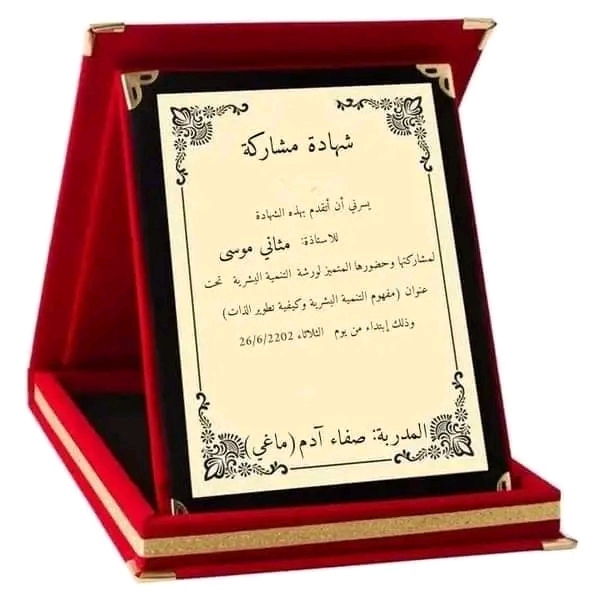 شهادة مشاركة
يسرني أن أتقدم بهذه الشهادة
للاستاذة: مثاني موسى
لمشاركتها وحضورها المتميز لورشة التنمية البشرية تحت
عنوان (مفهوم التنمية البشرية وكيفية تطوير الذات)
وذلك إبتداء من يوم الثلاثاء 26/6/2202
المدربة: صفاء آدم(ماغي)